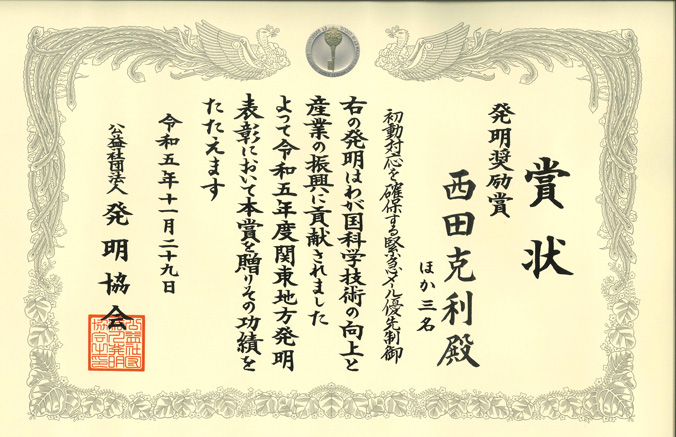 賞状
発明奨励賞
西田克利殿
ほか三名
初動対応を確保する緊急メール優先制御
右の発明はわが国科学技術の向上と
産業の振興に貢献されました
よって令和五年度関東地方発明
表彰において本賞を贈りその功績を
たたえます
令和五年十一月二十九日
公益社団法人 発明協会